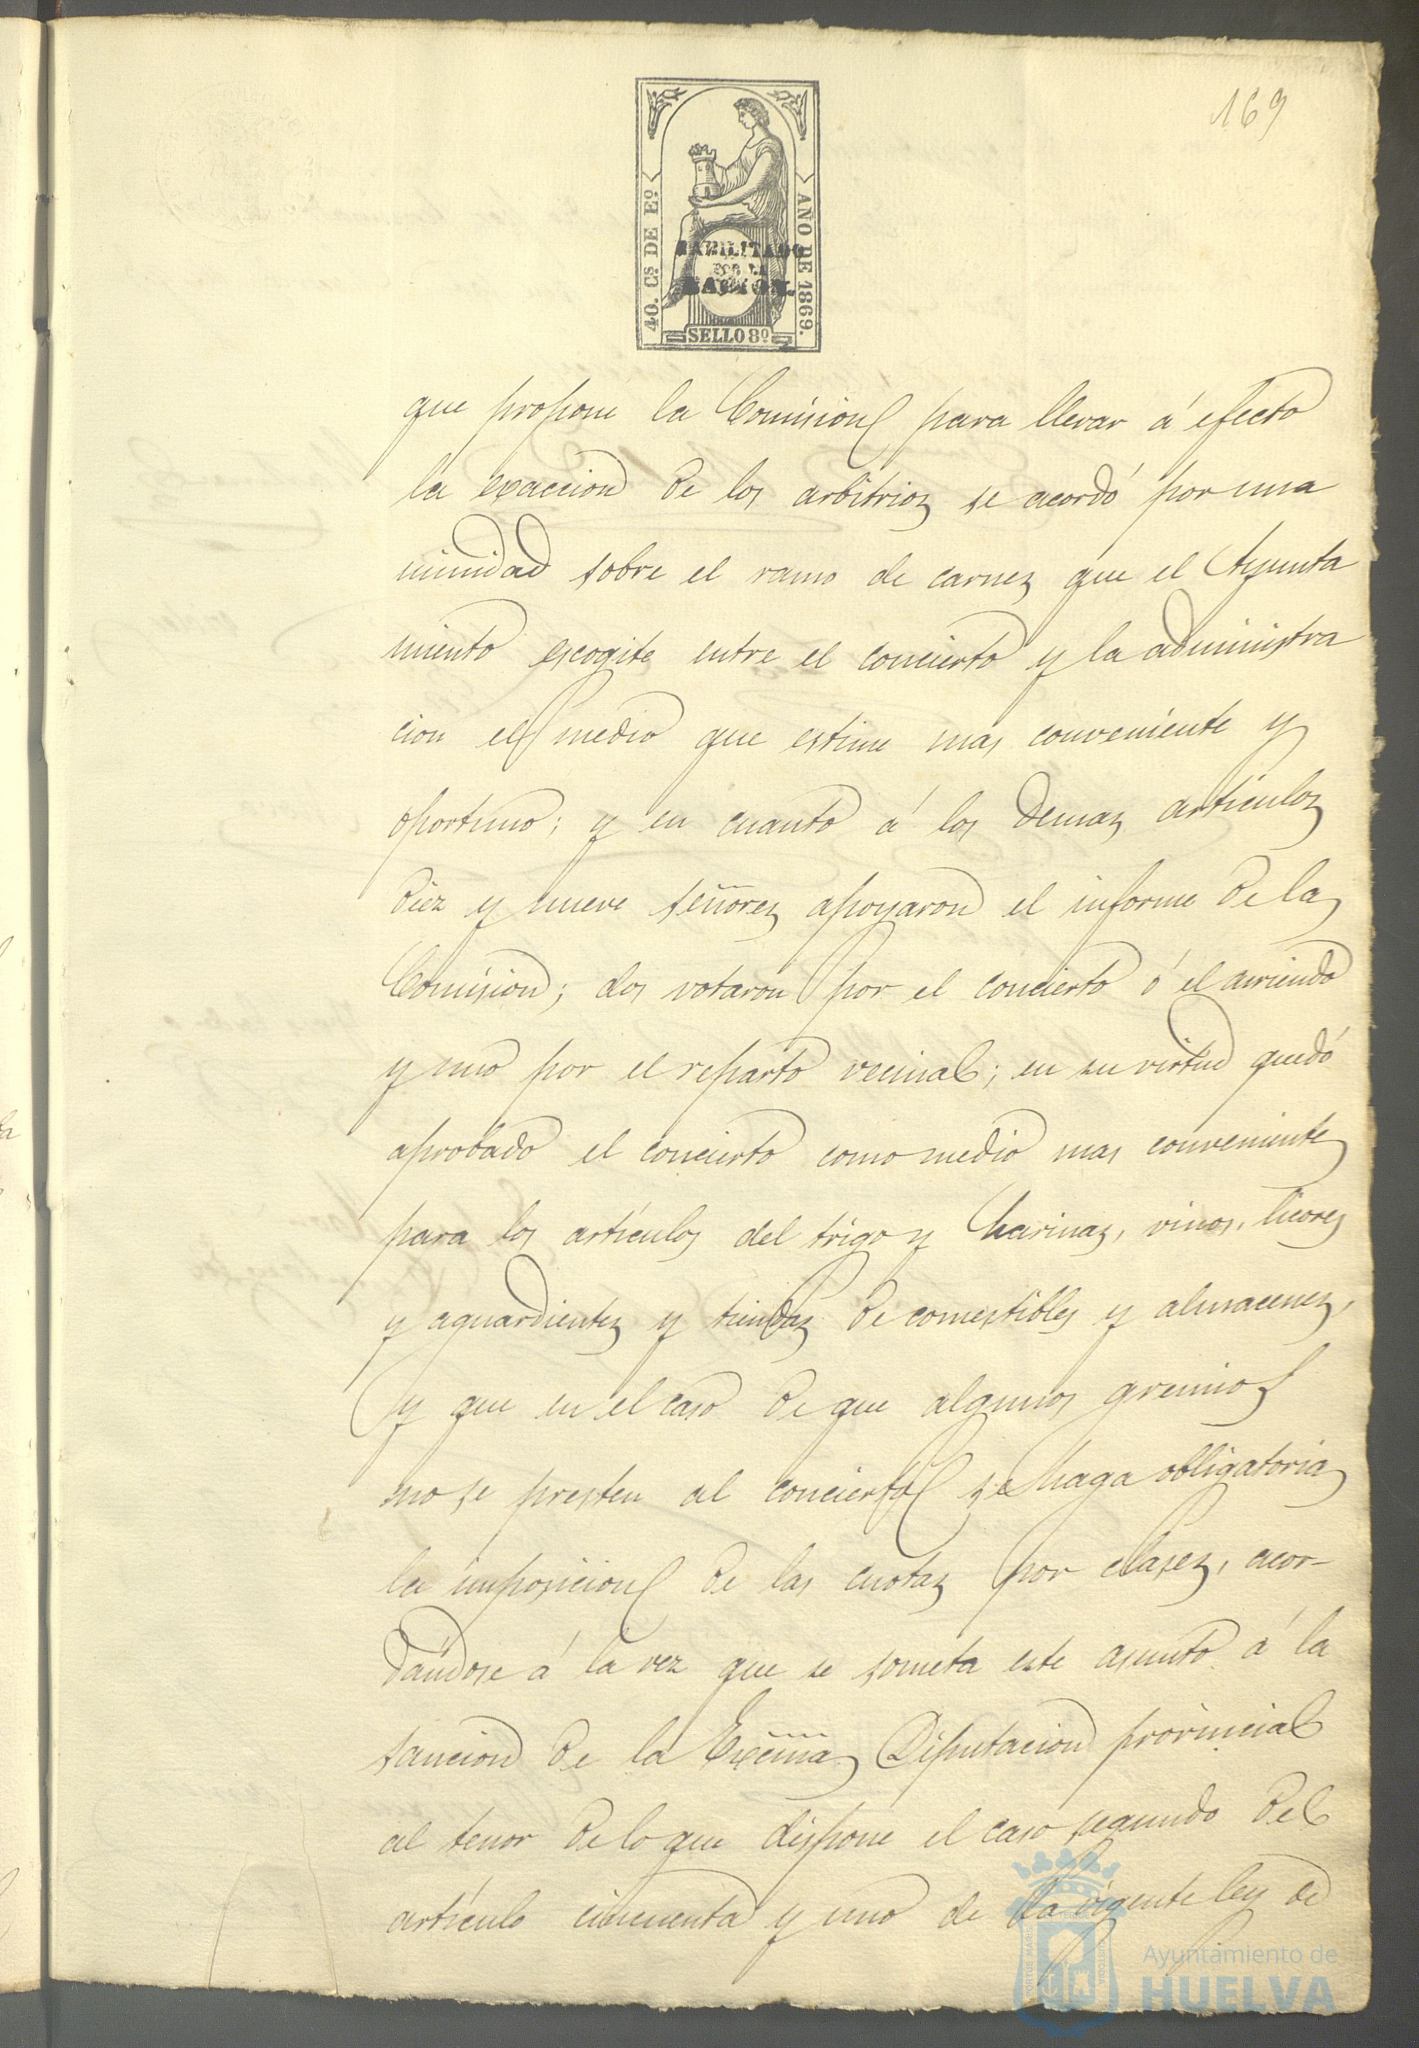 169
40. Cs. DE Eo.
AÑO DE 1869.
HABILITADO
POR LA
NACION.
SELLO 8º
que propone la Comision para llevar á efecto
la exaccion de los arbitrios se acordó por una
nimidad sobre el ramo de carnes que el Ayunta
miento escogite entre el concierto y la administra
cion el medio que estime mas conveniente y
oportuno; y en cuanto á los demas artículos
diez y nueve señores apoyaron el informe de la
Comision; dos votaron por el concierto ó el arriendo
y uno por el reparto vecinal; en su virtud quedó
aprobado el concierto como medio mas conveniente
para los artículos del trigo y harinas, vinos, licores
y aguardientes y tiendas de comestibles y almacenes,
y que en el caso de que algunos gremios
no se presten al concierto se haga obligatoria
la imposicion de las cuotas por clases, acor-
dándose á la vez que se someta este asunto á la
sancion de la Excma Diputacion provincial
al tenor de lo que dispone el caso segundo del
artículo cincuenta y uno de la vigente ley de
Ayuntamiento de
HUELVA